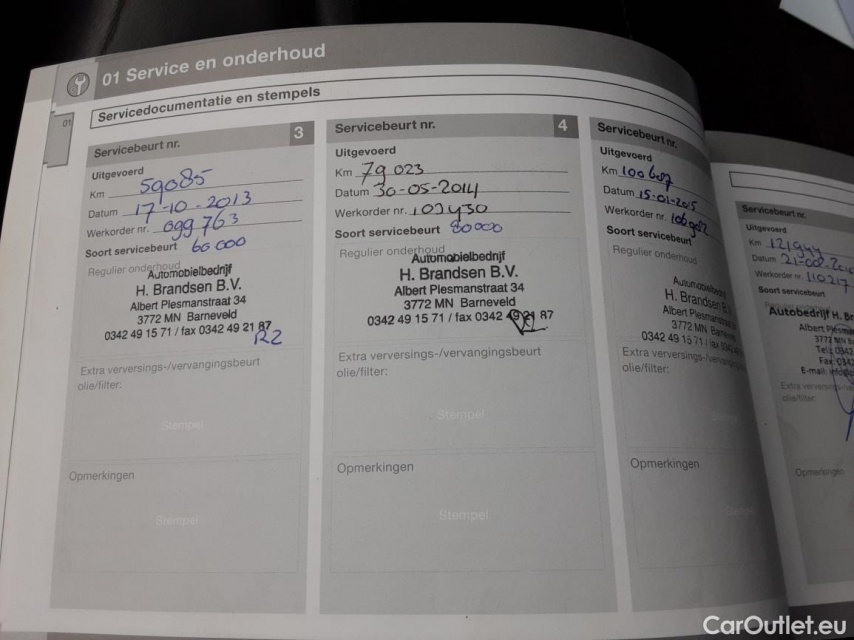 01 Service en onderhoud
Servicedocumentatie en stempels
01
Servicebeurt nr. 3
Uitgevoerd
Km 59085
Datum 17-10-2013
Werkorder nr. 099763
Soort servicebeurt 60000
Regulier onderhoud
Automobielbedrijf
H. Brandsen B.V.
Albert Plesmanstraat 34
3772 MN Barneveld
0342 49 15 71 / fax 0342 49 21 87
Extra verversings-/vervangingsbeurt
olie/filter:
Stempel
Opmerkingen
Stempel
Servicebeurt nr. 4
Uitgevoerd
Km 79023
Datum 30-05-2014
Werkorder nr.
Soort servicebeurt 80000
Regulier onderhoud
Automobielbedrijf
H. Brandsen B.V.
Albert Plesmanstraat 34
3772 MN Barneveld
0342 49 15 71 / fax 0342 49 21 87
Extra verversings-/vervangingsbeurt
olie/filter:
Stempel
Opmerkingen
Stempel
Servicebeurt nr.
Uitgevoerd
Km 100687
Datum 15-01-2015
Werkorder nr.
Soort servicebeurt
Regulier onderhoud
H. Brandsen
Albert Plesmans
3772 MN Barneve
0342 49 15 71 / fax
Extra verversings-/
olie/filter:
Opmerkingen
Servicebeurt nr.
Uitgevoerd
Km
Datum
Werkorder nr. 110217
Soort servicebeurt
Autobedrijf H. Br
Albert
3772
Tel: 0342
Fax: 0342
E-mail:
Extra
olie/filter:
Opmerkingen
CarOutlet.eu